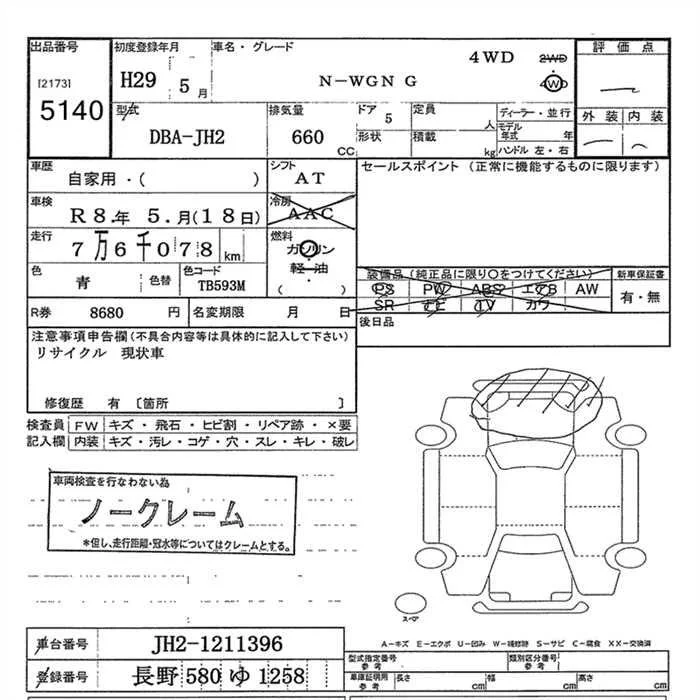 出品番号 初度登録年月 車名・グレード 評価点
[2173] H29 5月 N-WGN G 4WD 2WD 4WD
5140 型式 排気量 ドア 5 定員 人 ディーラー・並行 外装 内装
DBA-JH2 660 CC 形状 積載 kg モデル年式 年 ハンドル 左・右
車歴 シフト セールスポイント (正常に機能するものに限ります)
自家用・( ) AT
車検 冷房
R8.年 5.月(18日) AAC
走行 7万6千078 km 燃料 ガソリン
軽・油
色 青 色替 色コード TB593M ( )
装備品(純正品に限り○をつけてください) 新車保証書
PS PW ABS2 エアB AW 有・無
SR ナビ TV カワ
R券 8680 円 名変期限 月 日 後日品
注意事項申告欄(不具合内容等は具体的に記入して下さい)
リサイクル 現状車
修復歴 有 〔箇所 〕
検査員 FW キズ・飛石・ヒビ割・リペア跡・×要
記入欄 内装 キズ・汚レ・コゲ・穴・スレ・キレ・破レ
車両検査を行なわない為
ノークレーム
*但し、走行距離・冠水等についてはクレームとする。
スペア
A-キズ E-エクボ U-凹み W-補修跡 S-サビ C-腐食 XX-交換済
車台番号 JH2-1211396 型式指定番号 参考 類別区分番号 参考
登録番号 長野 580 ゆ 1258 車庫証明用 参考 長さ cm 幅 cm 高さ cm